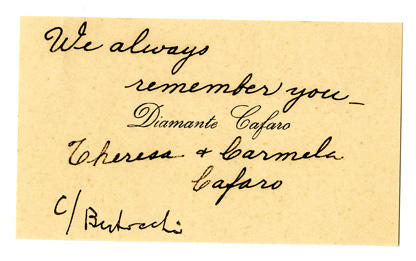 We always
remember you—
Diamante Cafaro
Theresa & Carmela
Cafaro
C/ Bertocchi